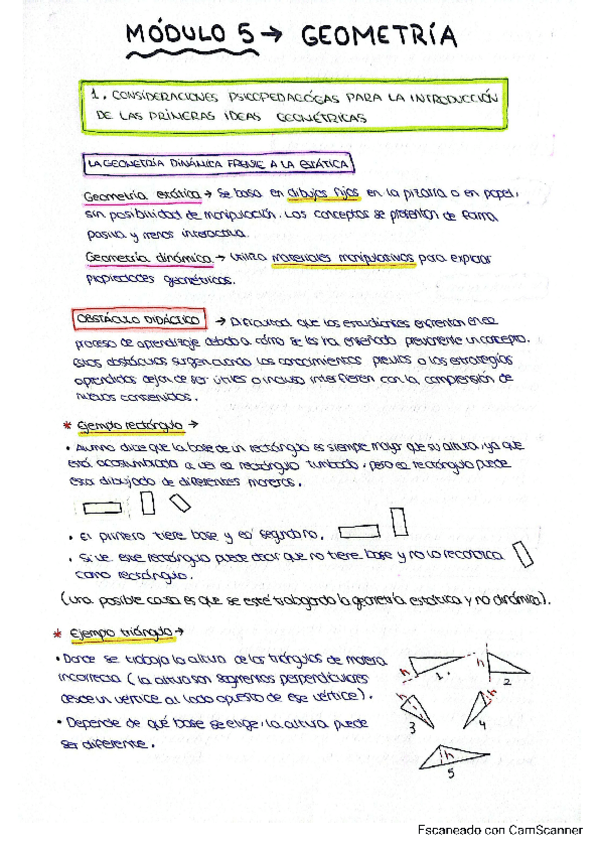 MÓDULO 5 → GEOMETRÍA
1. CONSIDERACIONES PSICOPEDAGÓGAS PARA LA INTRODUCCIÓN
DE LAS PRIMERAS IDEAS GEOMÉTRICAS
LA GEOMETRÍA DINÁMICA FRENTE A LA ESTÁTICA
Geometría estática → Se basa en dibujos fijos en la pizarra o en papel,
sin posibilidad de manipulación. Los conceptos se presentan de forma
pasiva y menos interactiva.
Geometría dinámica → Utiliza materiales manipulativos para explorar
propiedades geométricas.
OBSTÁCULO DIDÁCTICO → Dificultad que los estudiantes enfrentan en el
proceso de aprendizaje debido a cómo se les ha enseñado previamente un concepto.
Estos obstáculos surgen cuando los conocimientos previos o las estrategias
aprendidas dejan de ser útiles o incluso interfieren con la comprensión de
nuevos contenidos.
* Ejemplo rectángulo →
• Alumno dice que la base de un rectángulo es siempre mayor que su altura, ya que
está acostumbrado a ver el rectángulo tumbado, pero el rectángulo puede
estar dibujado de diferentes maneras.
• El primero tiene base y el segundo no.
• Si ve este rectángulo puede decir que no tiene base y no lo reconozca
como rectángulo.
(Una posible causa es que se esté trabajando la geometría estática y no dinámica).
* Ejemplo triángulo →
• Donde se trabaja la altura de los triángulos de manera
incorrecta (la altura son segmentos perpendiculares
desde un vértice al lado opuesto de ese vértice).
• Depende de qué base se elige, la altura puede
ser diferente.
h
1.
h
2
h
3
h
4
h
5
Escaneado con CamScanner